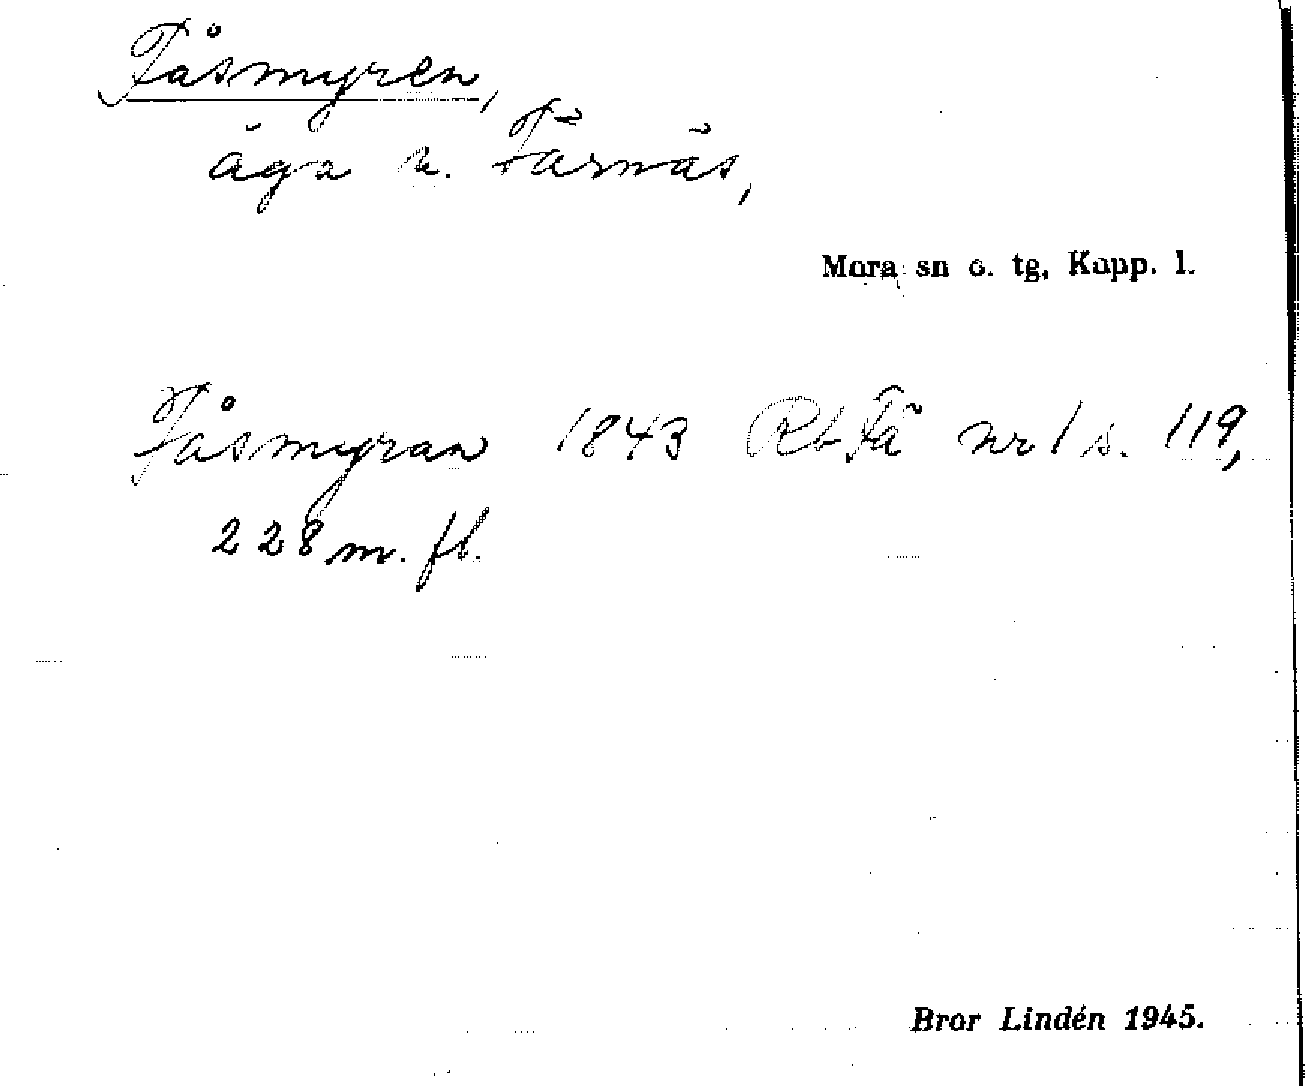 Fåsmyren,
äga u. Färnäs,
Mora sn o. tg, Kopp. l.
Fåsmyran 1843 RbFä nr 1 s. 119,
228 m. fl.
Bror Lindén 1945.